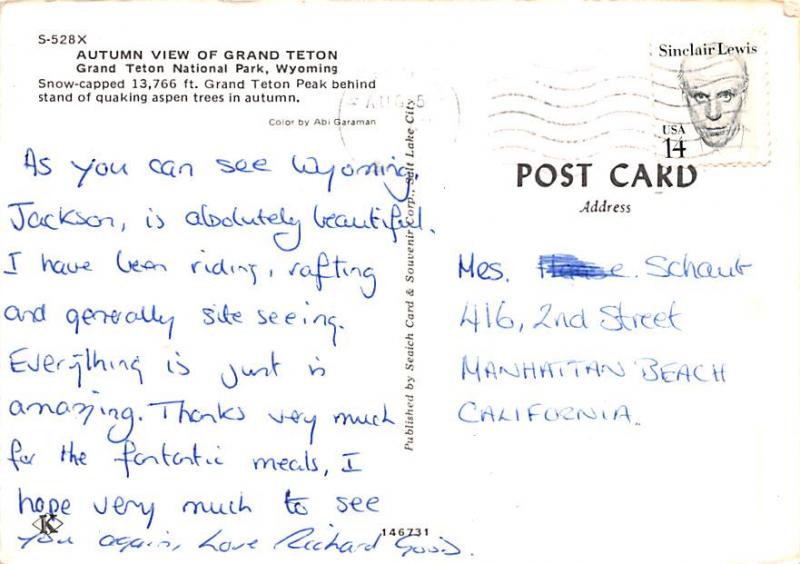 S-528X
AUTUMN VIEW OF GRAND TETON
Grand Teton National Park, Wyoming
Snow-capped 13,766 ft. Grand Teton Peak behind
stand of quaking aspen trees in autumn.
Color by Abi Garaman
As you can see Wyoming
Jackson, is absolutely beautiful.
I have been riding, rafting
and generally site seeing.
Everything is just is
amazing. Thanks very much
for the fantastic meals, I
hope very much to see
you again, Love Richard
K
Published by Seaich Card & Souvenir Corp., Salt Lake City
146731
AUG 5
Sinclair Lewis
USA
14
POST CARD
Address
Mes. Schaub
416, 2nd Street
MANHATTAN BEACH
CALIFORNIA.